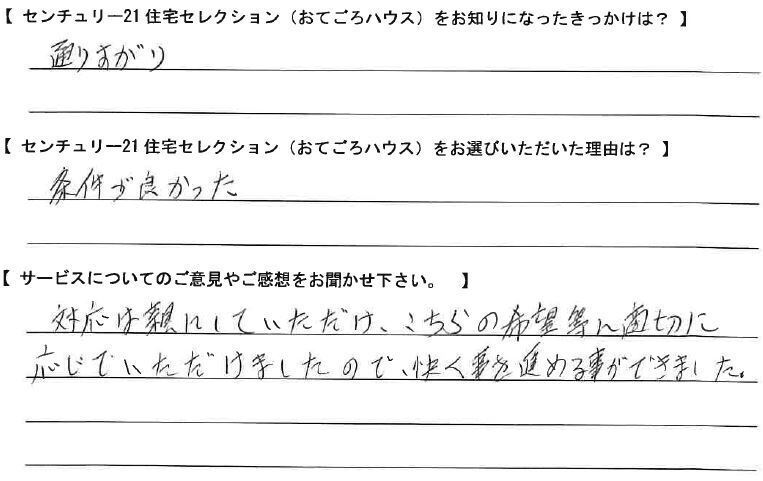 【 センチュリー21 住宅セレクション（おてごろハウス）をお知りになったきっかけは？ 】
通りすがり
【 センチュリー21 住宅セレクション（おてごろハウス）をお選びいただいた理由は？ 】
条件が良かった
【 サービスについてのご意見やご感想をお聞かせ下さい。 】
対応は親身にしていただけ、こちらの希望等に適切に
応じていただけましたので、快く事を進める事ができました。